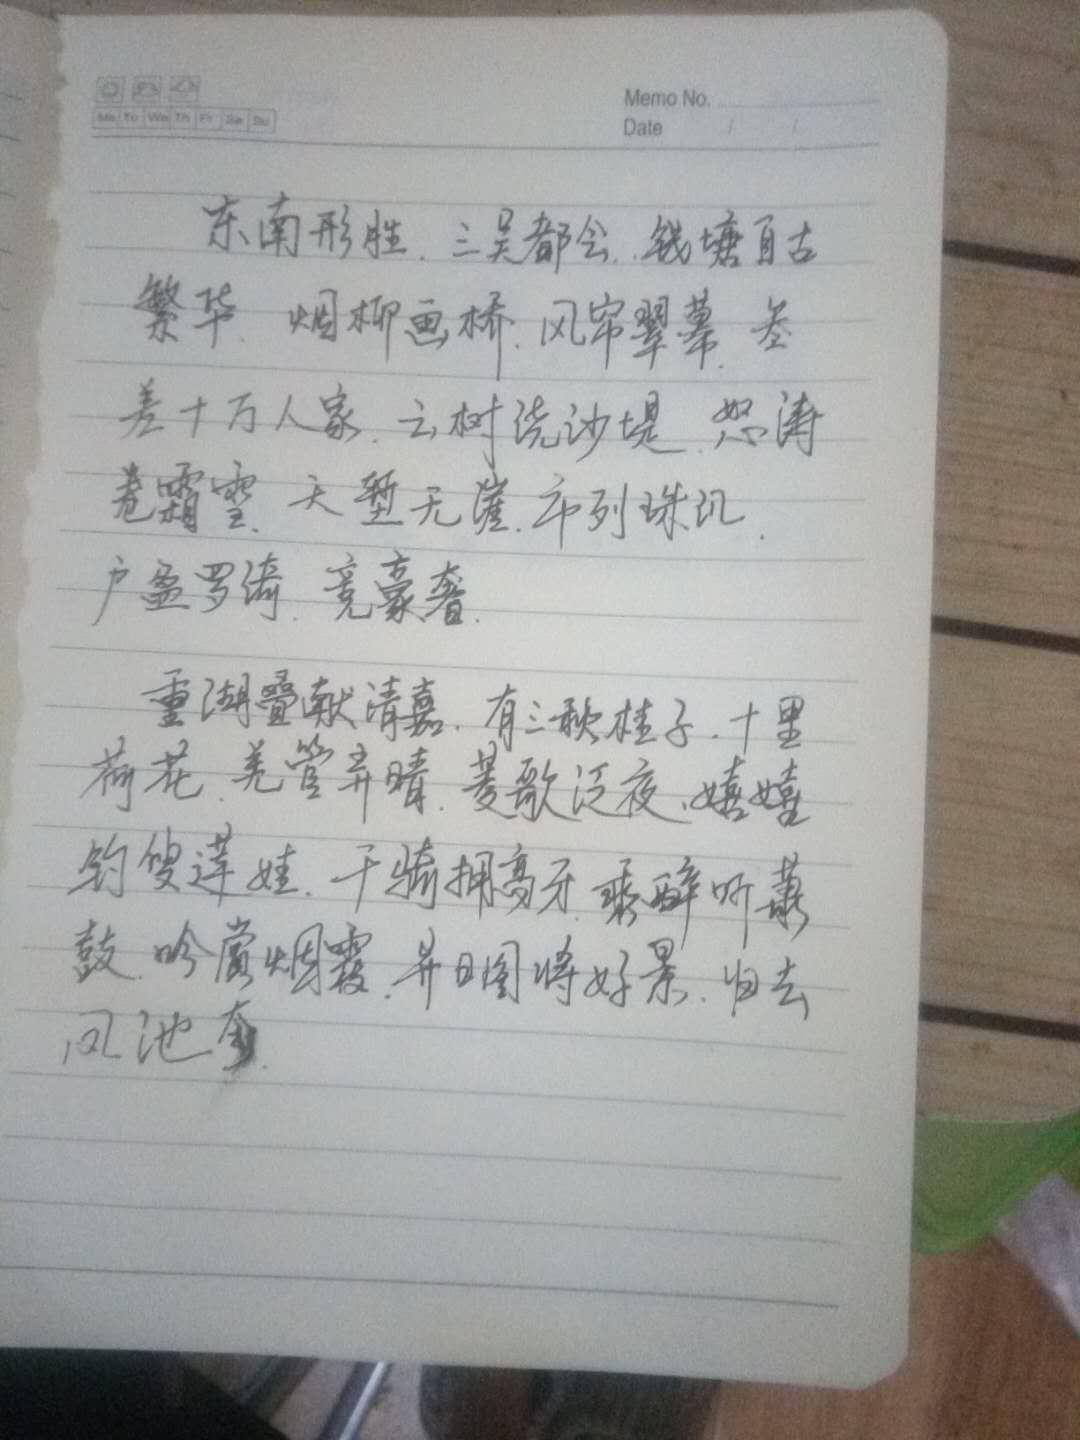 Mo Tu We Th Fr Sa Su
Memo No.
Date / /
东南形胜.三吴都会.钱塘自古
繁华.烟柳画桥.风帘翠幕.参
差十万人家.云树绕沙堤.怒涛
卷霜雪.天堑无涯.市列珠玑.
户盈罗绮.竞豪奢.
重湖叠献清嘉.有三秋桂子.十里
荷花.羌管弄晴.菱歌泛夜.嬉嬉
钓叟莲娃.千骑拥高牙.乘醉听萧
鼓.吟赏烟霞.异日图将好景.归去
凤池夸.